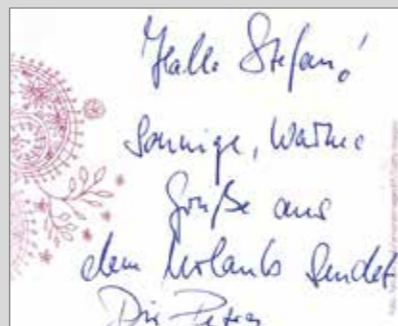 Hallo Stefan!
Sonnige, warme
Grüße aus
dem Urlaub sendet
Dir Petra